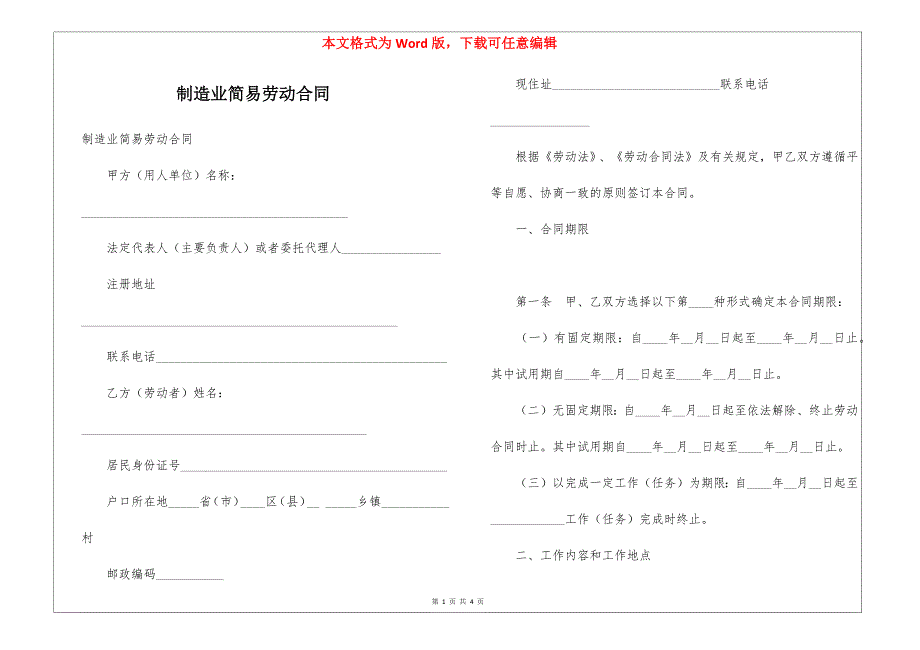 本文格式为 Word 版，下载可任意编辑
制造业简易劳动合同
制造业简易劳动合同
甲方（用人单位）名称：
___________________________________________
法定代表人（主要负责人）或者委托代理人________________
注册地址
___________________________________________________
联系电话_______________________________________________
乙方（劳动者）姓名：
______________________________________________
居民身份证号___________________________________________
户口所在地_____省(市)____区(县)__ _____乡镇___________
村
邮政编码___________
现住址___________________________联系电话
________________
根据《劳动法》、《劳动合同法》及有关规定，甲乙双方遵循平
等自愿、协商一致的原则签订本合同。
一、合同期限
第一条 甲、乙双方选择以下第____种形式确定本合同期限：
（一）有固定期限：自____年__月__日起至____年__月__日止。
其中试用期自____年__月__日起至____年__月__日止。
（二）无固定期限：自____年__月__日起至依法解除、终止劳动
合同时止。其中试用期自____年__月__日起至____年__月__日止。
（三）以完成一定工作（任务）为期限：自____年__月__日起至
____________工作（任务）完成时终止。
二、工作内容和工作地点
第 1 页 共 4 页